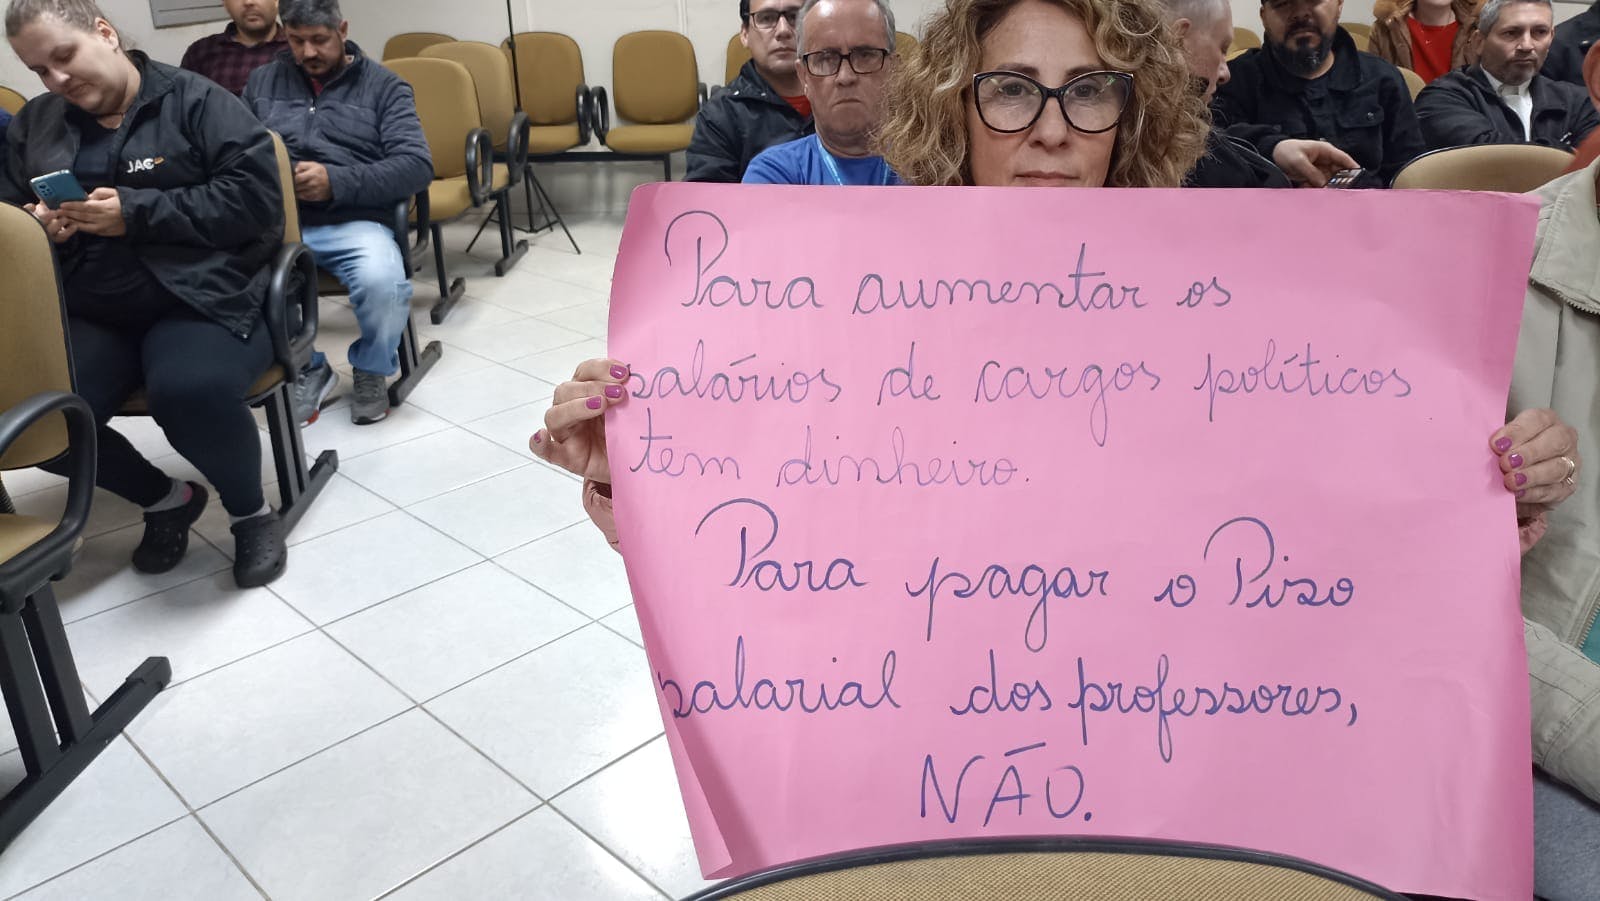 JAC
Para aumentar os
salários de cargos políticos
tem dinheiro.
Para pagar o Piso
salarial dos professores,
NÃO.